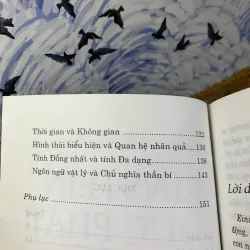 Thời gian và Không gian ........ 122
Hình thái biểu hiện và Quan hệ nhân quả... 130
Tính Đồng nhất và tính Đa dạng ........ 138
Ngôn ngữ vật lý và Chủ nghĩa thần bí ........ 143
Phụ lục ........ 151
Lời đ